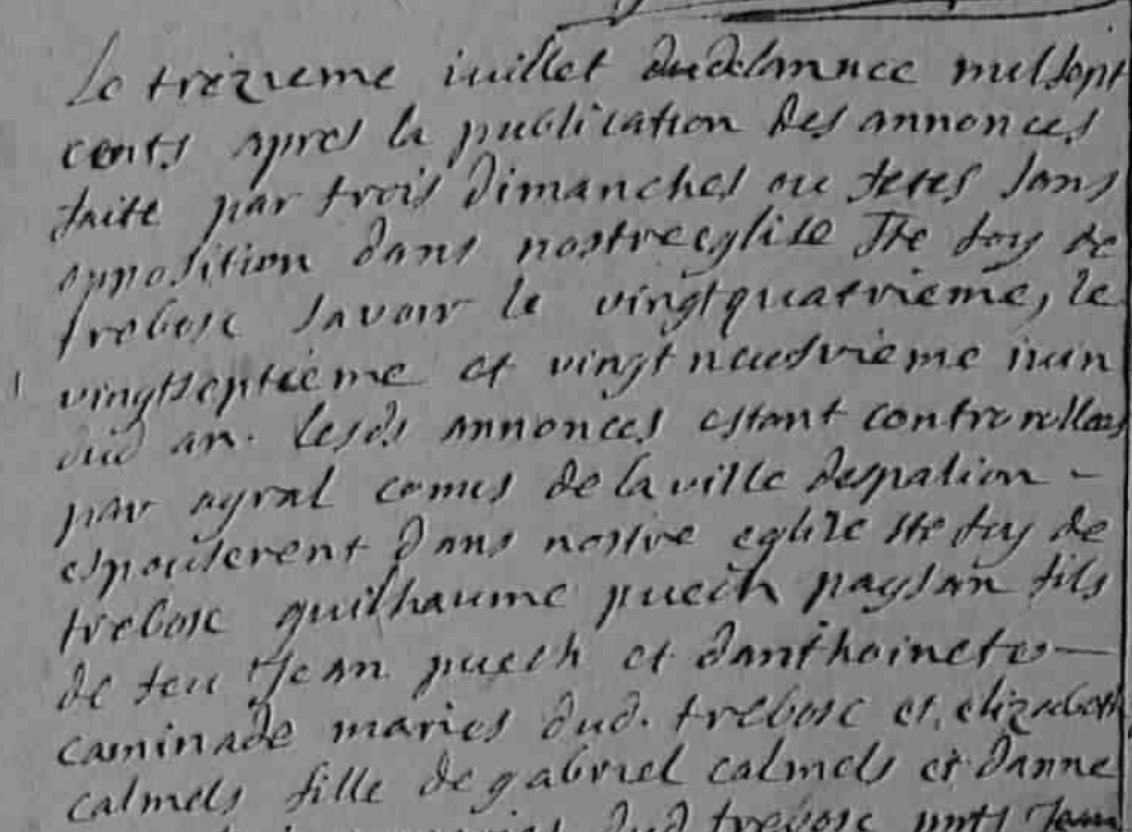 Le trezieme iuillet dudelannee mil sept
cents apres la publication des annonces
faite par trois dimanches ou festes sans
opposition dans nostre eglise Ste foy de
trebosc savoir le vingtquatrieme, le
vingtseptieme et vingt neusvieme iuin
dud an. lesds annonces estant controrollees
par ayral comis de la ville despalion -
espouserent dans nostre eglize ste foy de
trebosc guilhaume puech paysan fils
de feu Jean puech et danthoinete -
caminade maries dud. trebosc et elizabeth
calmels fille de gabriel calmels et danne
maries dud trebosc pnts Jean